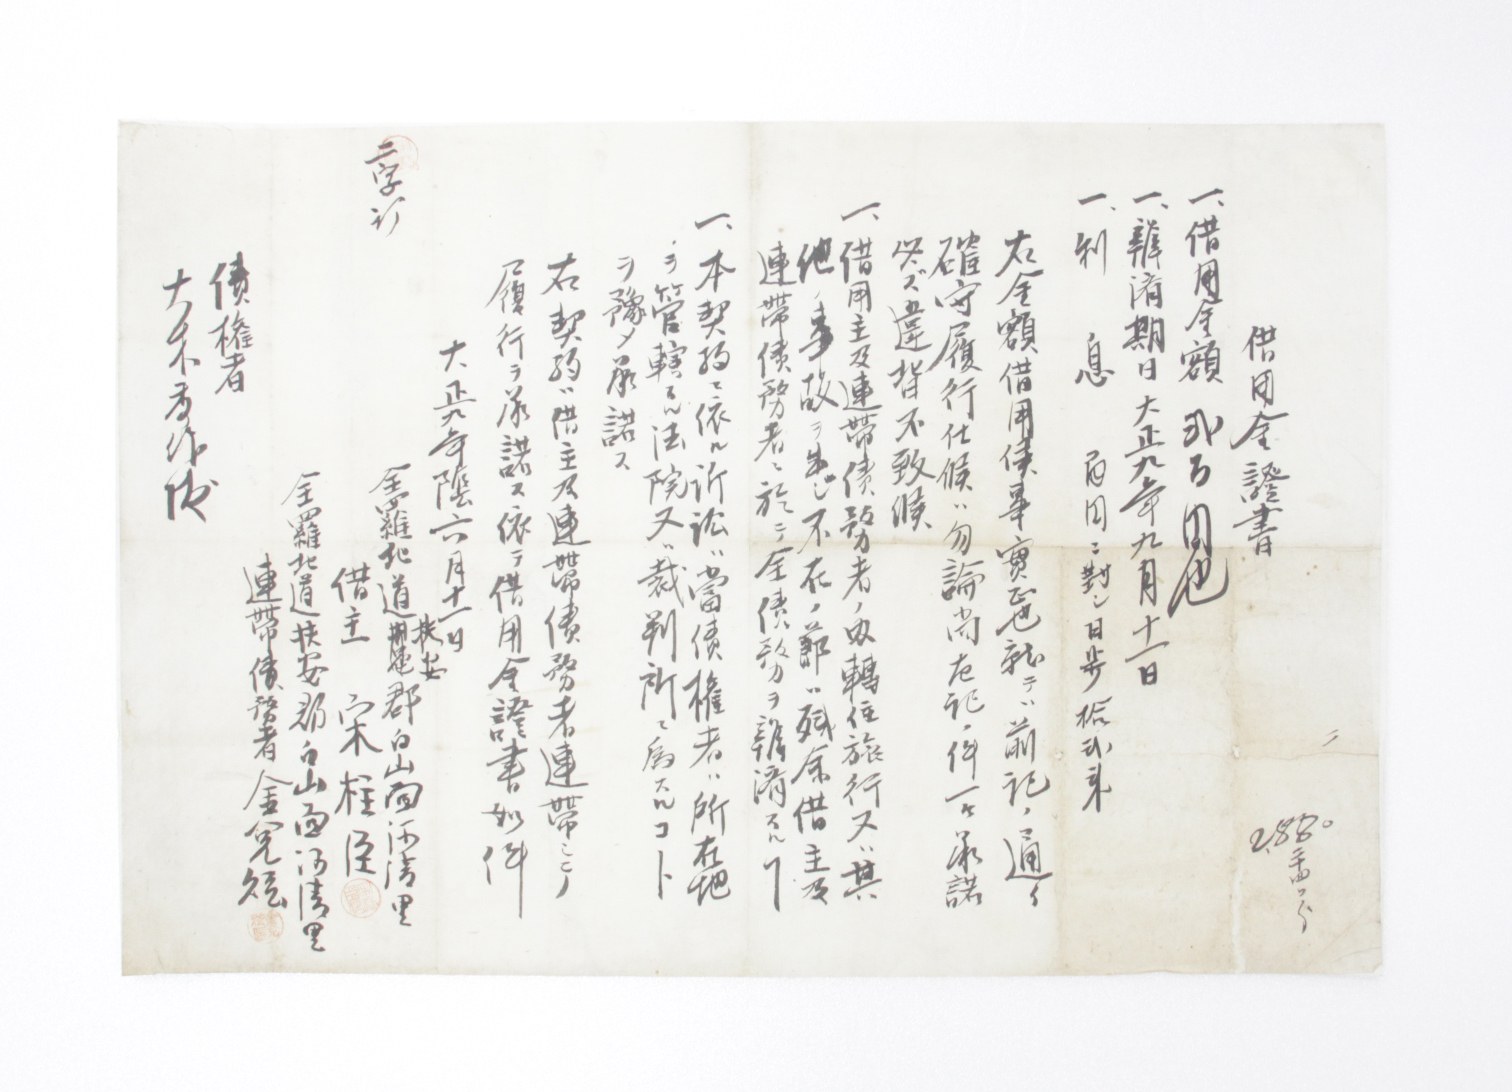 借用金證書
一、借用金額 弐百円也
一、辨済期日大正九年九月十一日
一、利息 百円ニ對シ日歩拾弐
右金額借用候事實正也就テハ前記ノ通リ
確守履行仕候ハ勿論尚左記ノ件一々承諾
必ズ違背不致候
一、借用主及連帯債務者ノ内轉住旅行又ハ其
他ノ事故ヲ生ジ不在ノ節ハ残余借主及
連帯債務者ニ於テ全債務ヲ辨済スルコト
一、本契約ニ依ル訴訟ハ當債権者ハ所在地
ヲ管轄スル法院又ハ裁判所ニ為スルコト
ヲ豫メ承諾ス
右契約ハ借主及連帯債務者連帯シテ
履行ヲ承諾ス依テ借用金證書如件
大正九年陰六月十一日
二字訂
扶安
全羅北道郡白山面河清里
借主 宋柱臣
全羅北道扶安郡白山面河清里
連帯債務者 金
債権者
大木
二
2,880